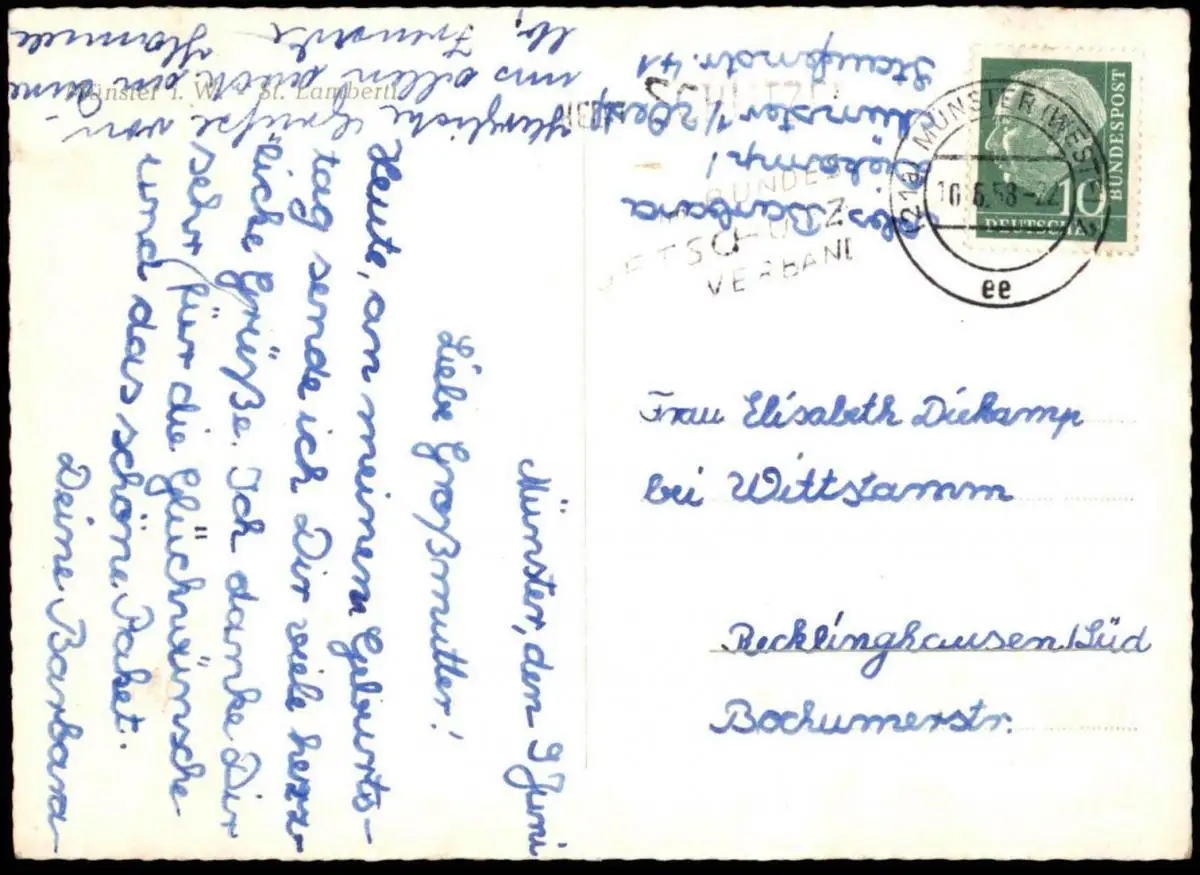 Münster i. W. - St. Lamberti
Münster, den 9 Juni
Liebe Großmutter!
Heute, an meinem Geburts-
tag sende ich Dir viele herz-
liche Grüße. Ich danke Dir
sehr für die Glückwünsche
und das schöne Paket.
Deine Barbara
Herzliche Grüße von
uns allen auch an
Abs. Barbara
Diekamp
Münster
Staufenstr. 41
(21a) MÜNSTER (WESTF)
10.6.58-22
ee
BUNDES
VERBAND
DEUTSCHE
BUNDESPOST
10
Frau Elisabeth Diekamp
bei Wittstamm
Recklinghausen/Süd
Bochumerstr.